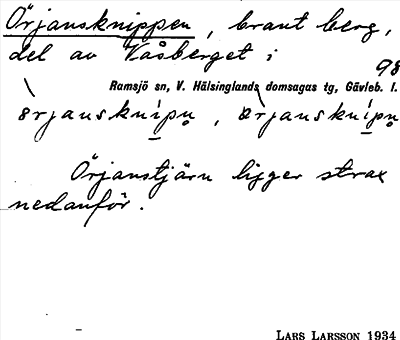 Örjansknippen, brant berg,
del av Våsberget i
98
Ramsjö sn, V. Hälsinglands domsagas tg, Gävleb. l.
Örjanstjärn ligger strax
nedanför.
LARS LARSSON 1934